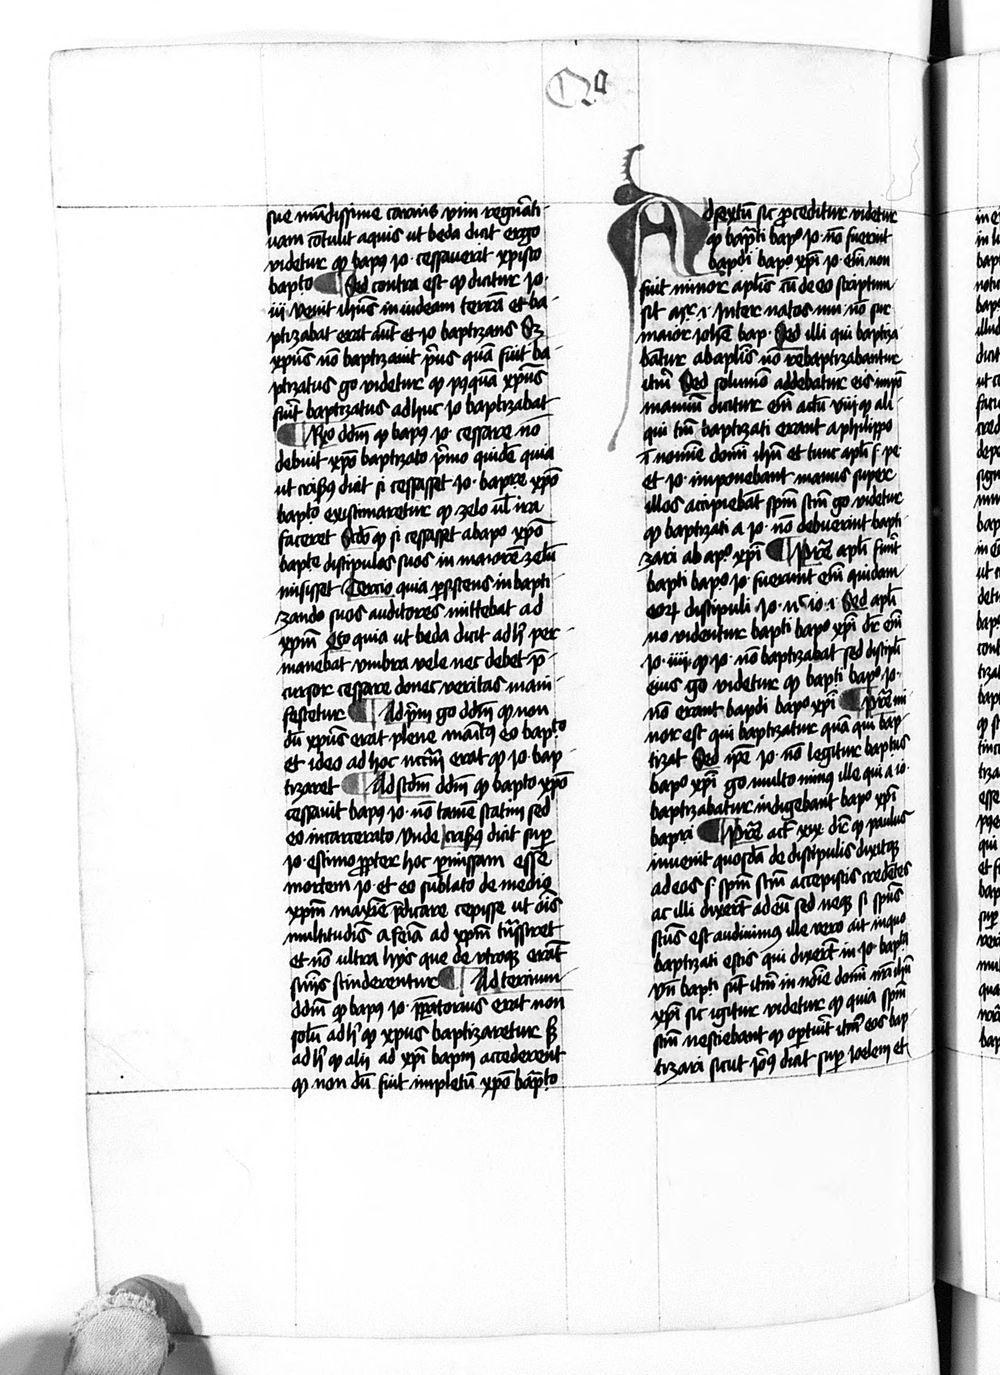 Qº
sue mūdissime carnis vim regn̄ati
uam cōtulit aquis ut beda dicit ergo
videtur ꝙ bapꝰ Jo· cessauerit xpisto
bapto Sed contra est ꝙ dicitur Jo·
iij· venit ihūs in iudeam terrā et ba
ptizabat erat aūt et Jo baptizans Sꝫ
xpūs nō baptizauit p̄us quā fuit ba
ptizatus go videtur ꝙ pꝰquā xpūs
fuīt baptizatus adhuc Jo baptizabat
Rꝰo dd̄m ꝙ bapꝰ Jo· cessare nō
debuit xpō baptizato p̄mo quidē quia
ut crisꝰ dicit si cessasset Jo· bapte xpō
bapto existimaretur ꝙ zelo ul̄ ira
faceret Scd̄o ꝙ si cessasset a bapº xpō
bapte discipulos suos in maiorē zelū
misisset Tercio quia psistens in bapti
zando suos auditores mittebat ad
xpm̄ quia ut beda dicit adhꝰ per
manebat vmbra vele nec debet p̄
cursor cessare donec veritas mani
festetur Ad p̄m go dd̄m ꝙ non
dū xpūs erat plene eo bapto
et ideo ad hoc nccm̄ erat ꝙ Jo· bap
tizaret Ad scdm̄ dd̄m ꝙ bapto xpō
cessauit bapꝰ Jo· nō tamē statim sed
eo incarcerato Vnde crisꝰ dicit sup
Jo· estimo ꝓpter hoc p̄missam esse
mortem Jo· et eo sublato de medio
xpm̄ maxīe p̄dicare cepisse ut ōis
multitudīs affeīa ad xpm̄ trāsiret
et nō ultra hijs que de vtroqꝫ erāt
snīijs scinderentur Ad tercium
dd̄m ꝙ bapꝰ Jo· ꝑatorius erat non
solū ad hꝰ ꝙ xpus baptizaretur sꝫ
ad hꝰ ꝙ alij ad xpī bapm̄ accederent
ꝙ non dū fuit impletū xpō bapto
Ad sextū sic ꝓceditur videtur
ꝙ bapti bapº Jo· nō fuerint
bapdi bapº xpī Jo· em̄ non
fuit minor aplīs cū de eo scriptum
sit Inter natos mu nō sur
maior Johē bap· Sed illi qui baptiza
bātur ab aplīs nō rebaptizabantur
itm̄ Sed solumō addebatur eis impō
manuū dicitur em̄ actū viij ꝙ ali
qui tm̄ baptizati erant a philippo
ī nomīe domī ihū et tunc aplī s· pe·
et Jo· imponebant manus super
illos accipiebāt spm̄ scm̄ go videtur
ꝙ baptizati a Jo· nō debuerint bapti
zari ab apº xpī Pret̄e apl̄i fuīt
bapti bapº Jo· fuerunt em̄ quidam
eorꝫ discipuli Jo· Sed apl̄i
nō videntur bapti bapº xpī dr̄ em̄
Jo· iiij· ꝙ Jo· nō baptizabat sed discipl̄i
eius go videtur ꝙ bapti bapº Jo·
nō erant bapdi bapº xpī Pret̄e mi
nor est qui baptizatur quā qui bap
tizat Sed ip̄e Jo· nō legitur baptus
bapº xpī go multo minꝰ ille qui a Jo·
baptizabatur indigebant bapº xpī
bapti Pret̄e act̄ xix dr̄ ꝙ paulus
inuenit quosdā de discipulis dixitqꝫ
ad eos s· spm̄ scm̄ accepistis credētes
at illi dixerūt ad eū sed neqꝫ si spūs
scūs est audiuimꝰ ille vero ait in quo
baptizati estis qui dixerūt in Jo· bapto
Vn̄ bapti sūt itm̄ in nōie domī nr̄i ihū
xpī sic igitur videtur ꝙ quia spm̄
scm̄ nesciebant ꝙ oportuit itm̄ eos bap
tizari sicut Jerꝰ dicit sup Joelem et